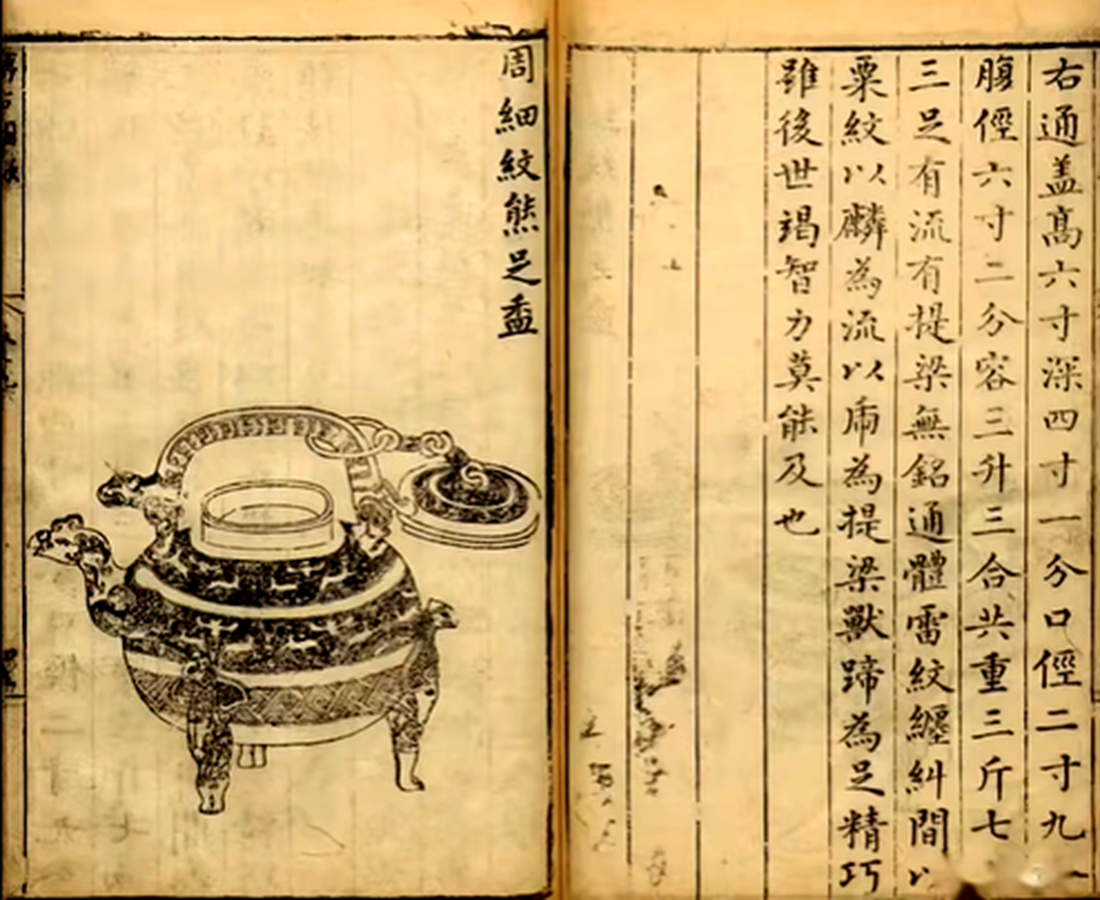 右通盖髙六寸深四寸一分口徑二寸九
腹徑六寸二分容三升三合共重三斤七
三足有流有提梁無銘通體雷紋纏糾間以
粟紋以麟為流以虎為提梁獸蹄為足精巧
雖後世竭智力莫能及也
周細紋熊足盉